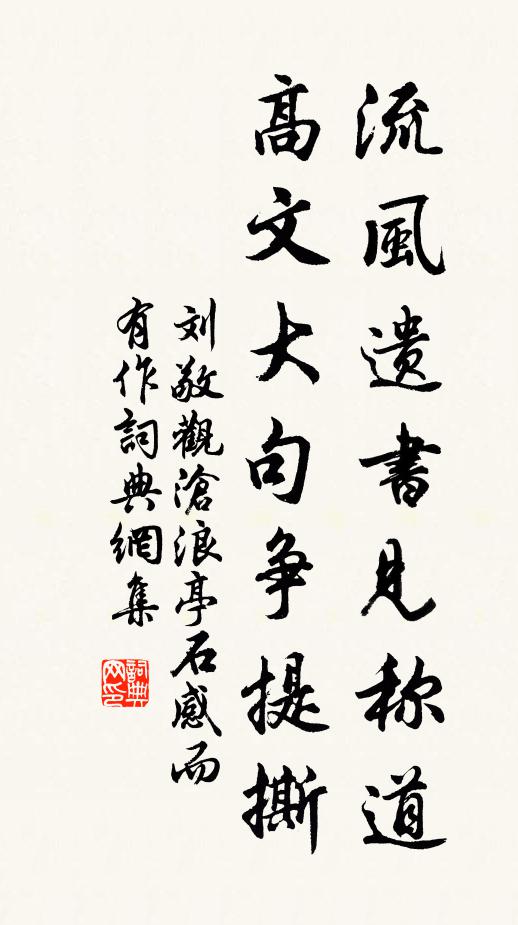 流風遗書見称道
高文大句争提撕
刘敞觀滄浪亭石感而
有作詞典網集
詞典
网印